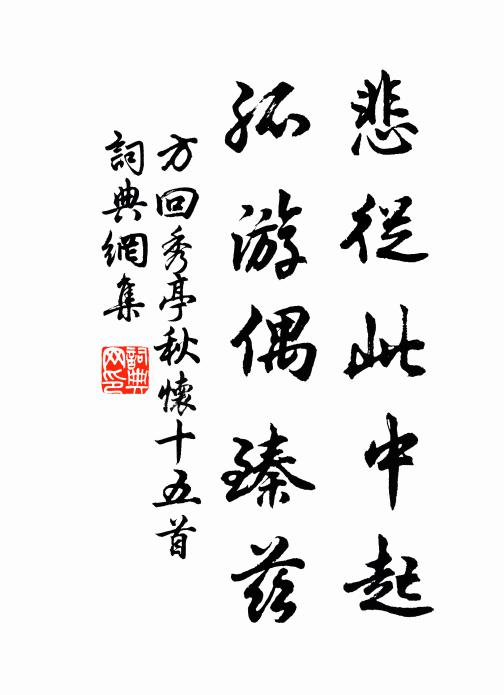 悲從此中起
孤游偶臻茲
方回秀亭秋懷十五首
詞典網集
詞典網印